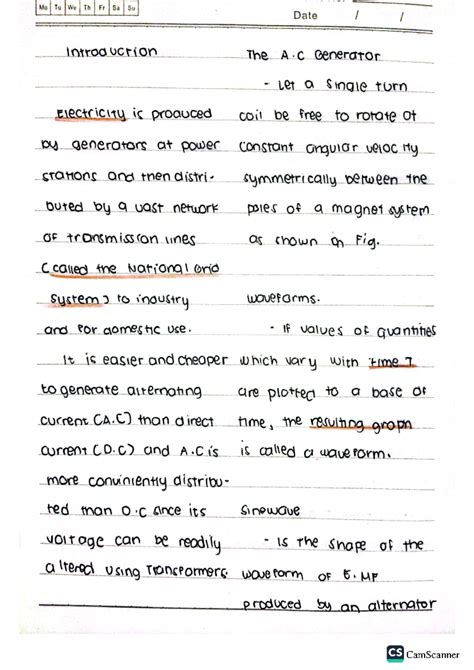 Mo Tu We Th Fr Sa Su
Date / /
Introduction
Electricity is produced
by generators at power
stations and then distri-
buted by a vast network
of transmission lines
(called the National Grid
System) to industry
and for domestic use.
It is easier and cheaper
to generate alternating
current (A.C) than direct
current (D.C) and A.C is
more conviniently distribu-
ted than D.C since its
voltage can be readily
altered using Transformers
The A.C Generator
- Let a single turn
coil be free to rotate at
constant angular velocity
symmetrically between the
poles of a magnet system
as shown in Fig.
waveforms.
- If values of quantities
which vary with time T
are plotted to a base of
time, the resulting graph
is called a waveform.
Sinewave
- Is the shape of the
waveform of E.MF
produced by an alternator
CS CamScanner